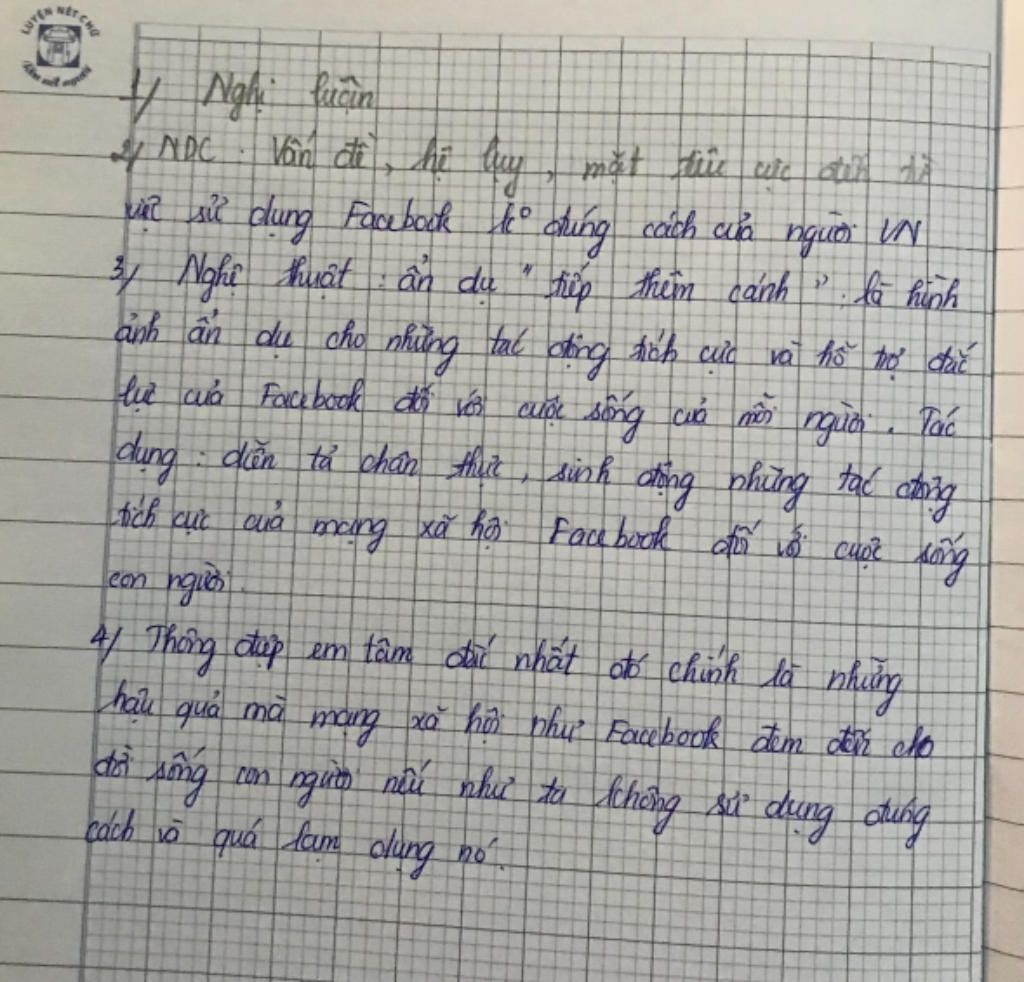 LUYỆN NÉT CHỮ
RÈN NẾT NGƯỜI
1/ Nghị luận
2/ NDC : Vấn đề, hệ lụy, mặt tiêu cực đến từ
việc sử dụng Facebook k° đúng cách của người VN
3/ Nghệ thuật : ẩn dụ " tiếp thêm cánh " : là hình
ảnh ẩn dụ cho những tác động tích cực và hỗ trợ đắc
lực của Facebook đối với cuộc sống của mỗi người. Tác
dụng : diễn tả chân thực, sinh động những tác động
tích cực của mạng xã hội Facebook đối với cuộc sống
con người.
4/ Thông điệp em tâm đắc nhất đó chính là những
hậu quả mà mạng xã hội như Facebook đem đến cho
đời sống con người nếu như ta không sử dụng đúng
cách và quá lạm dụng nó.